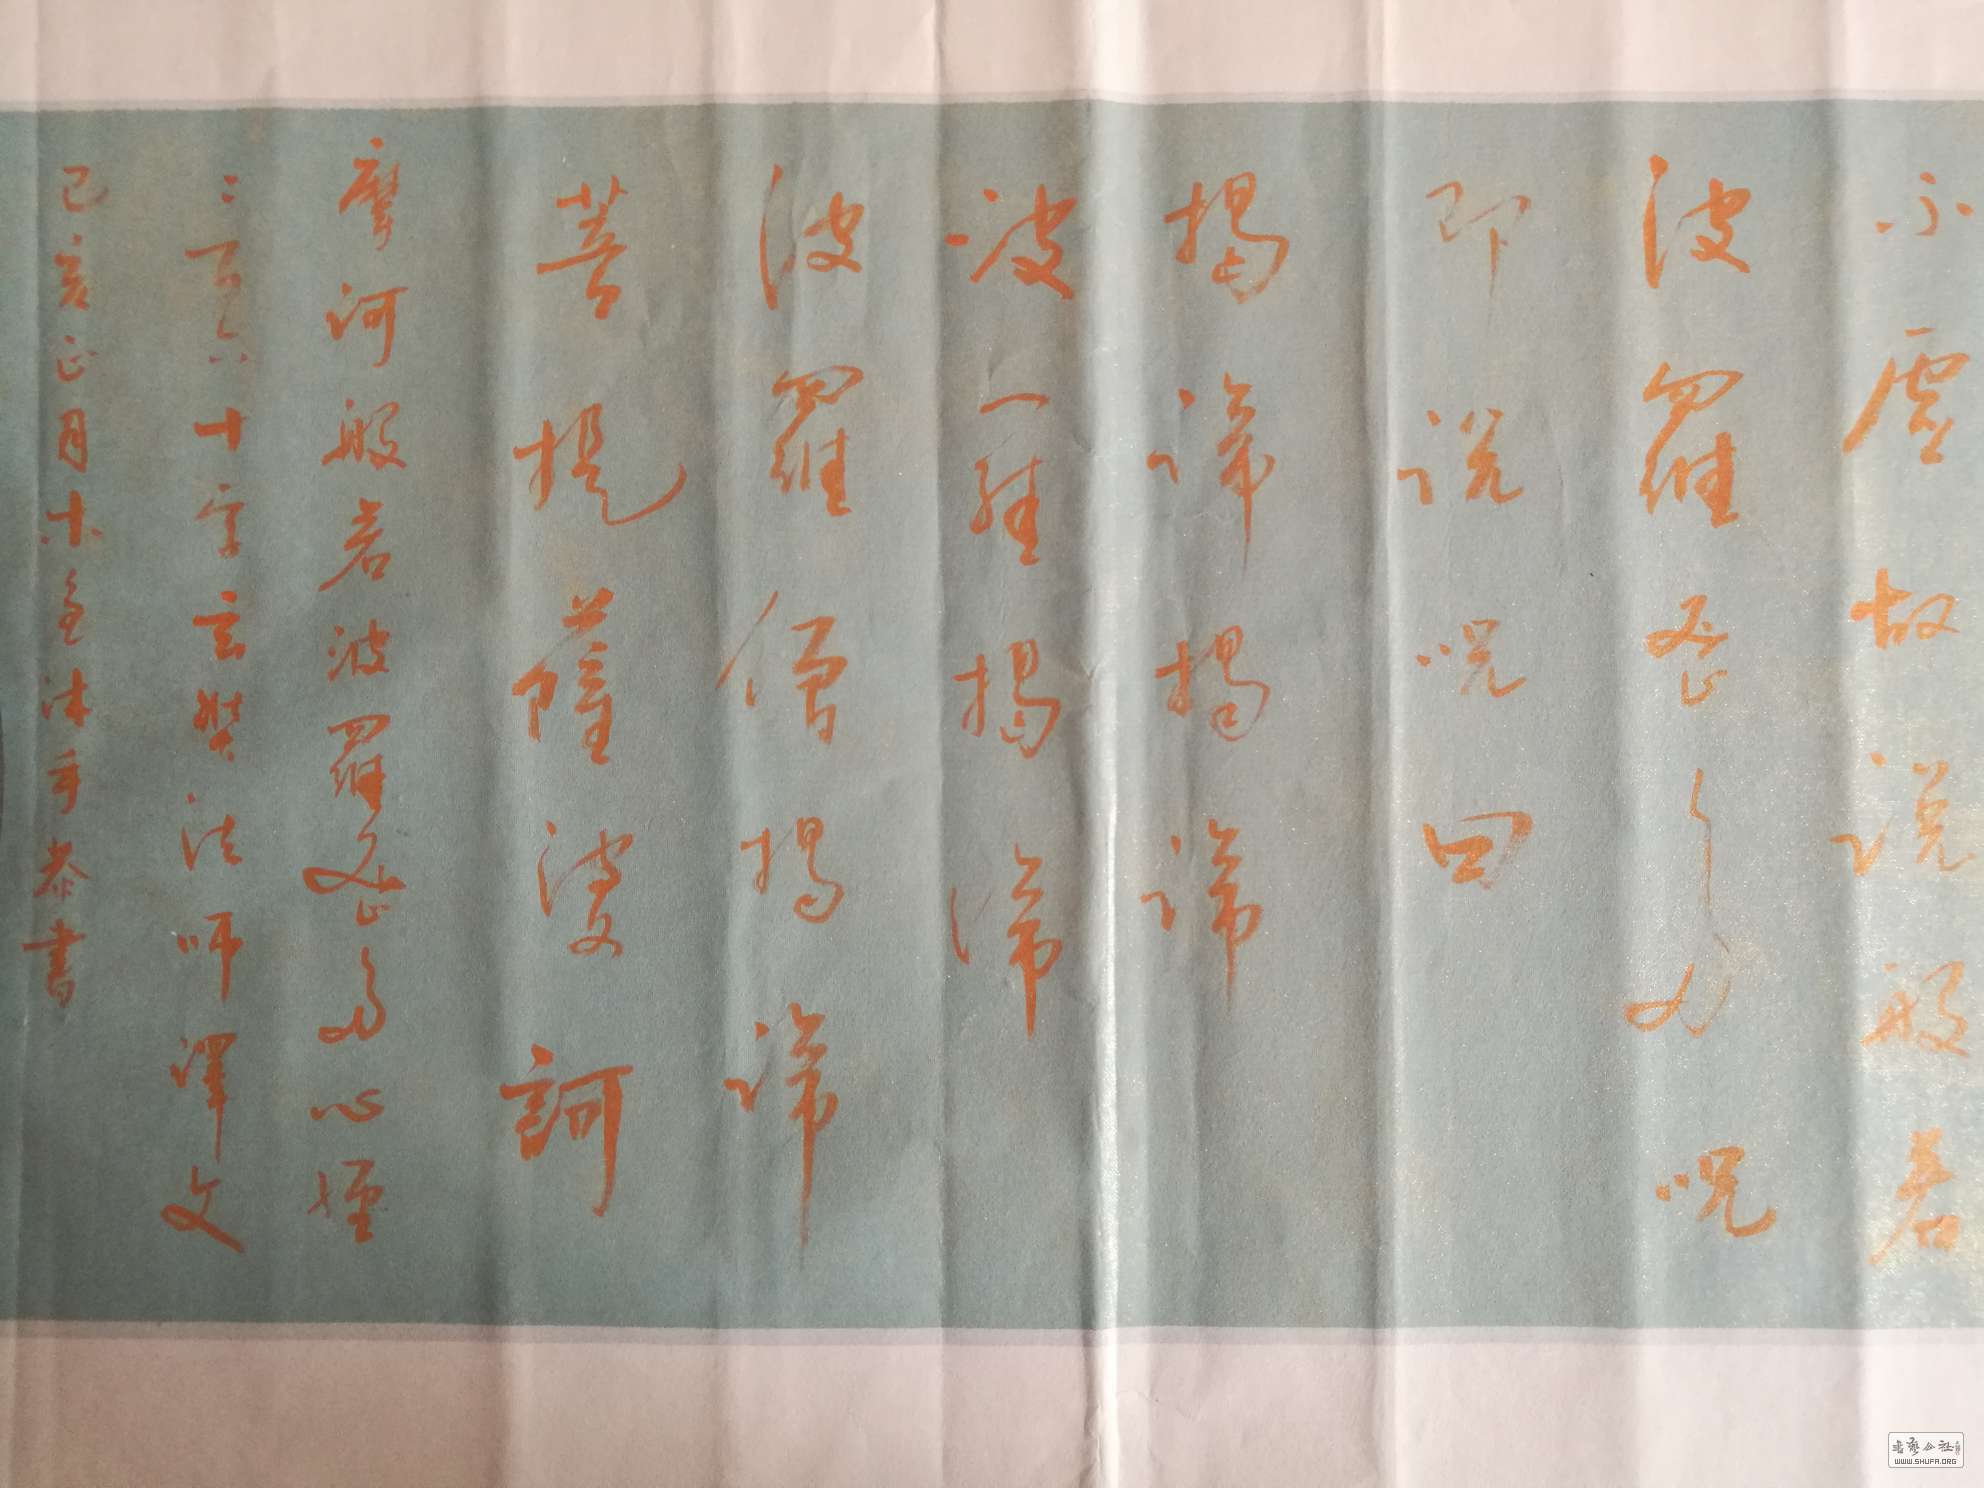 不虛故說般若
波羅蜜多呪
即說呪曰
揭諦揭諦
波羅揭諦
波羅僧揭諦
菩提薩婆訶
摩訶般若波羅蜜多心經
二百六十字玄奘法師譯文
己亥正月木沐手恭書
書藝公社
WWW.SHUFA.ORG